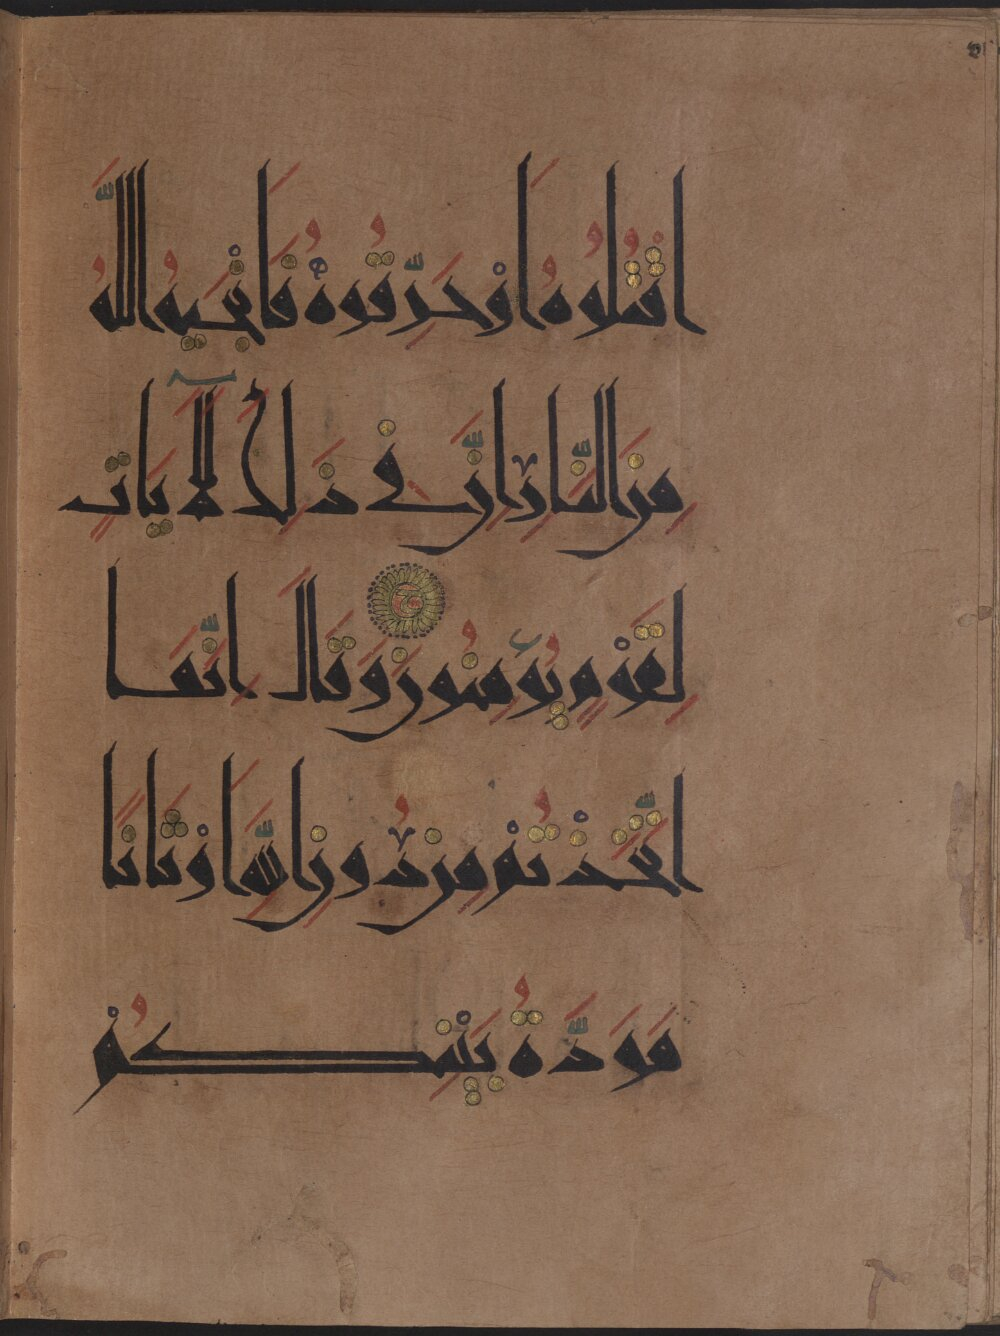 اقْتُلُوهُ اَوْ حَرِّقُوهُ فَاَنْجَيهُ اللّٰهُ
مِنَ النَّارِ اِنَّ فِى ذَلِكَ لَآيَاتٍ
لِقَوْمٍ يُؤْمِنُونَ وَقَالَ اِنَّمَا
اتَّخَذْتُمْ مِنْ دُونِ اللّٰهِ اَوْثَانًا
مَوَدَّةُ بَيْنِكُمْ